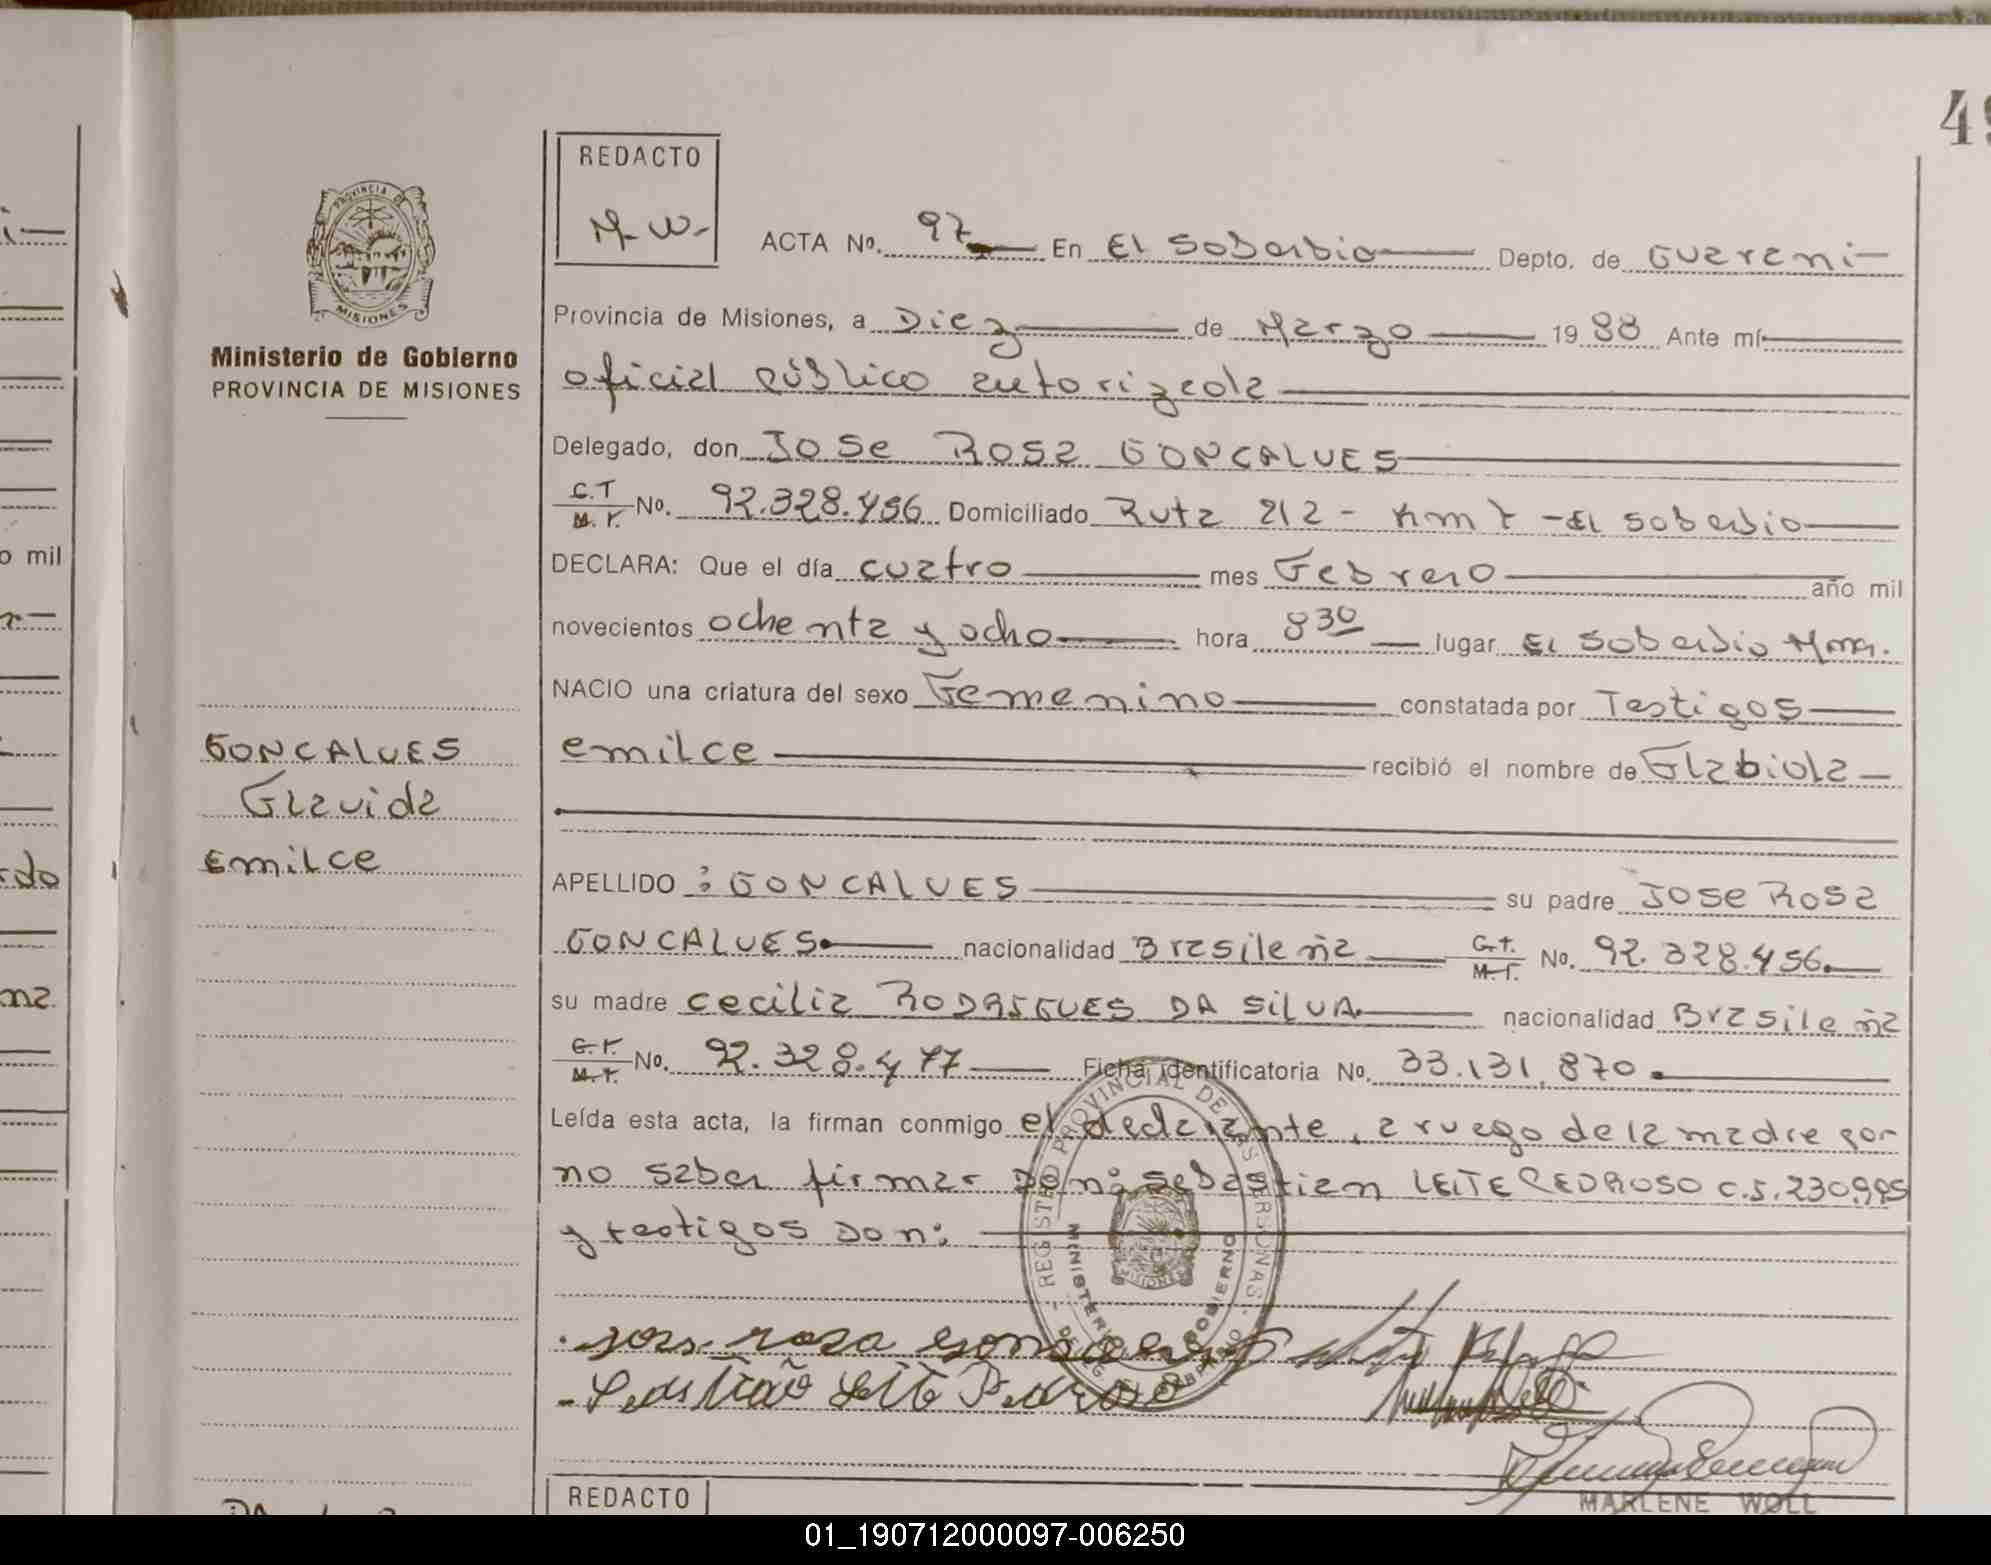 49
REDACTO
M.W.
PROVINCIA DE
MISIONES
Ministerio de Gobierno
PROVINCIA DE MISIONES
ACTA No. 97 En El Soberbio Depto. de Guarani
Provincia de Misiones, a Diez de Marzo 1988 Ante mí
oficial público autorizada
Delegado, don JOSE ROSA GONCALVES
C.I. M.I. No. 92.328.456 Domiciliado Ruta 212 - Km 7 - El Soberbio
DECLARA: Que el día cuatro mes Febrero año mil
novecientos ochenta y ocho hora 8 30 lugar El Soberbio Mnes.
NACIO una criatura del sexo Femenino constatada por Testigos
emilce recibió el nombre de Flabiola
GONCALVES
Flavida
Emilce
APELLIDO : GONCALVES su padre JOSE ROSA
GONCALVES nacionalidad Brasileña C.I. M.I. No. 92.328.456
su madre Cecilia RODRIGUES DA SILVA nacionalidad Brasileña
C.I. M.I. No. 92.328.477 Ficha identificatoria No. 33.131.870
Leída esta acta, la firman conmigo el declarante, a ruego de la madre por
no saber firmar Don: Sebastian LEITE PEDROSO C.I. 230.995
y testigos Don:
REGISTRO PROVINCIAL DE LAS PERSONAS
MINISTERIO DE GOBIERNO
jose rosa gonsalves
Sebastião Leite Pedroso
MARLENE WOLL
REDACTO
01_190712000097-006250